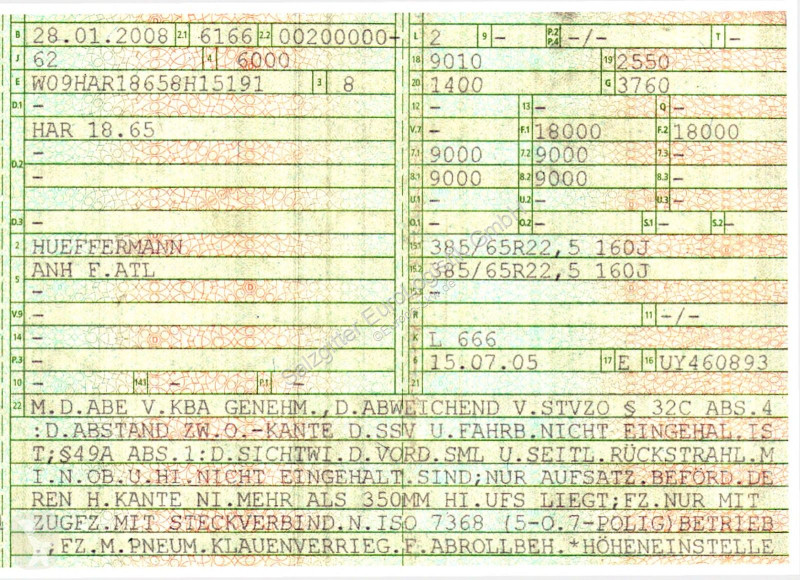 B 28.01.2008 2.1 6166 2.2 00200000- L 2 9 - P.2 P.4 -/- T -
J 62 4 6000 18 9010 19 2550
E W09HAR18658H15191 3 8 20 1400 G 3760
D.1 - 12 - 13 - Q -
HAR 18.65 V.7 - F.1 18000 F.2 18000
D.2 - 7.1 9000 7.2 9000 7.3 -
- 8.1 9000 8.2 9000 8.3 -
U.1 - U.2 - U.3 -
D.3 - O.1 - O.2 - S.1 - S.2 -
2 HUEFFERMANN 15.1 385/65R22,5 160J
5 ANH F.ATL 15.2 385/65R22,5 160J
- 15.3 -
V.9 - R 11 -/-
14 - K L 666
P.3 - 6 15.07.05 17 E 16 UY460893
10 - 14.1 - P.1 - 21
22 M.D.ABE V.KBA GENEHM.,D.ABWEICHEND V.STVZO § 32C ABS.4
:D.ABSTAND ZW.O.-KANTE D.SSV U.FAHRB.NICHT EINGEHAL.IS
T;§49A ABS.1:D.SICHTWI.D.VORD.SML U.SEITL.RÜCKSTRAHL.M
I.N.OB.U.HI.NICHT EINGEHALT.SIND;NUR AUFSATZ.BEFÖRD.DE
REN H.KANTE NI.MEHR ALS 350MM HI.UFS LIEGT;FZ.NUR MIT
ZUGFZ.MIT STECKVERBIND.N.ISO 7368 (5-O.7-POLIG)BETRIEB
.;FZ.M.PNEUM.KLAUENVERRIEG.F.ABROLLBEH.*HÖHENEINSTELLE
Salzgitter Eurologistik GmbH